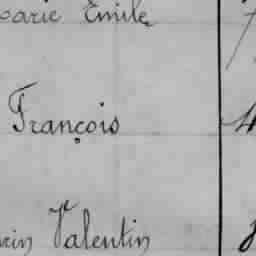 Marie Emile
François 4
Valentin